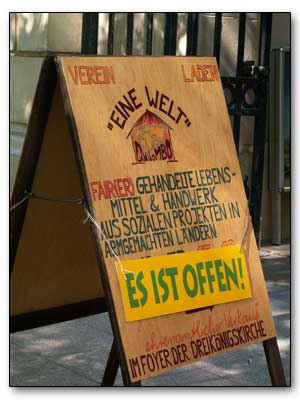 VEREIN LADEN
"EINE WELT"
QUILOMBO
FAIR(ER) GEHANDELTE LEBENS-
MITTEL & HANDWERK
AUS SOZIALEN PROJEKTEN IN
ARMGEMACHTEN LÄNDERN
ES IST OFFEN!
ehrenamtlicher Verkauf
IM FOYER DER DREIKÖNIGSKIRCHE